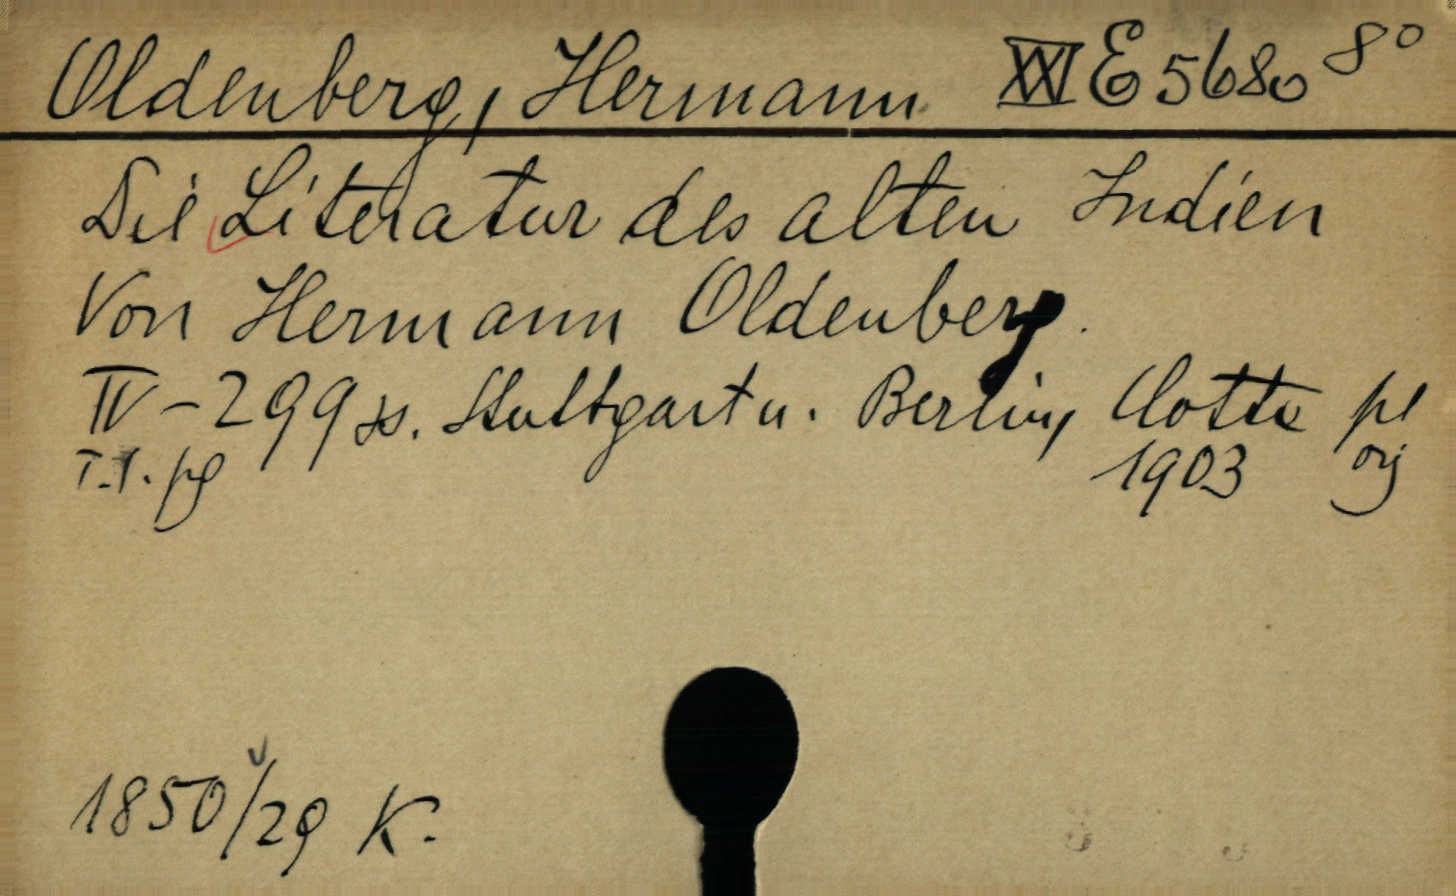 Oldenberg, Hermann XXI E 5680 8°
Die Literatur des alten Indien
Von Hermann Oldenberg.
IV-299 ss. Stuttgart u. Berlin, Cotta pl
T.I. pg 1903 orj
1850/29 K.